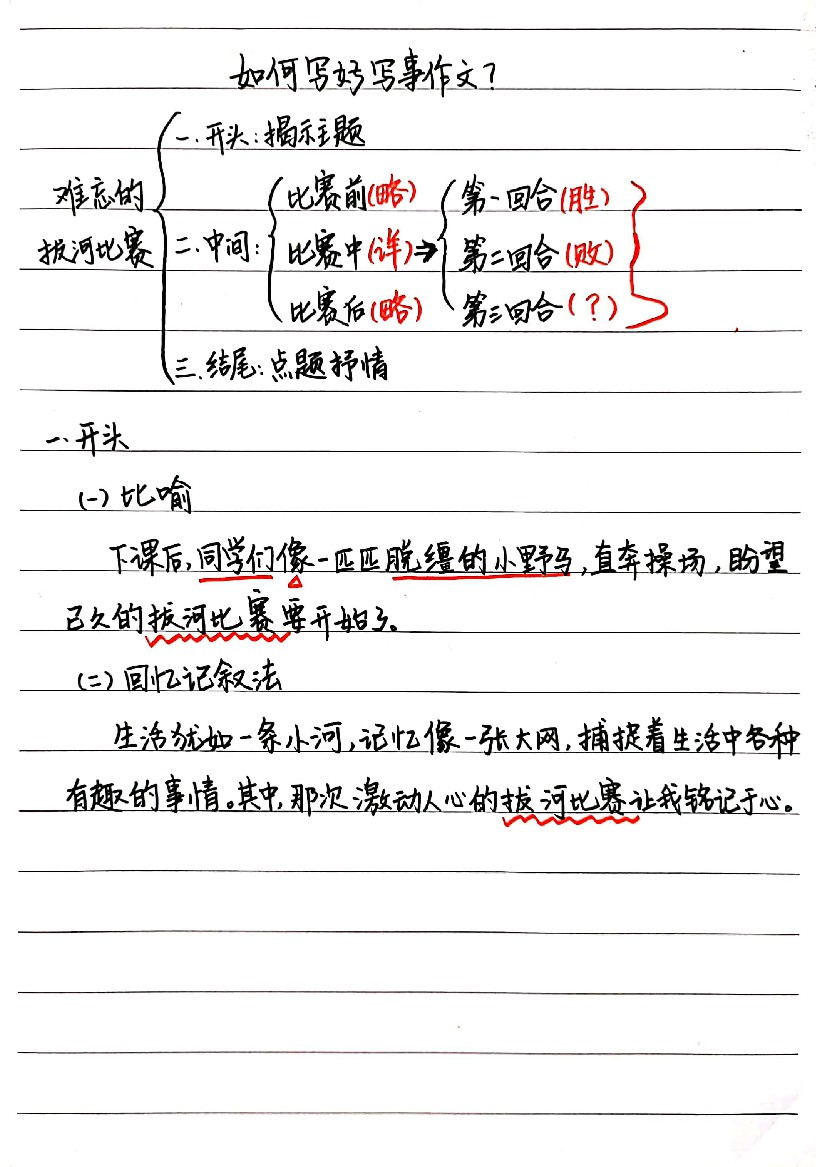 如何写好写事作文?
一.开头:揭示主题
难忘的
拔河比赛
二.中间:
比赛前(略)
比赛中(详)⇒
比赛后(略)
第一回合(胜)
第二回合(败)
第三回合(?)
三.结尾:点题抒情
一.开头
(一)比喻
下课后,同学们像一匹匹脱缰的小野马,直奔操场,盼望
已久的拔河比赛要开始了。
(二)回忆记叙法
生活犹如一条小河,记忆像一张大网,捕捉着生活中各种
有趣的事情。其中,那次激动人心的拔河比赛让我铭记于心。